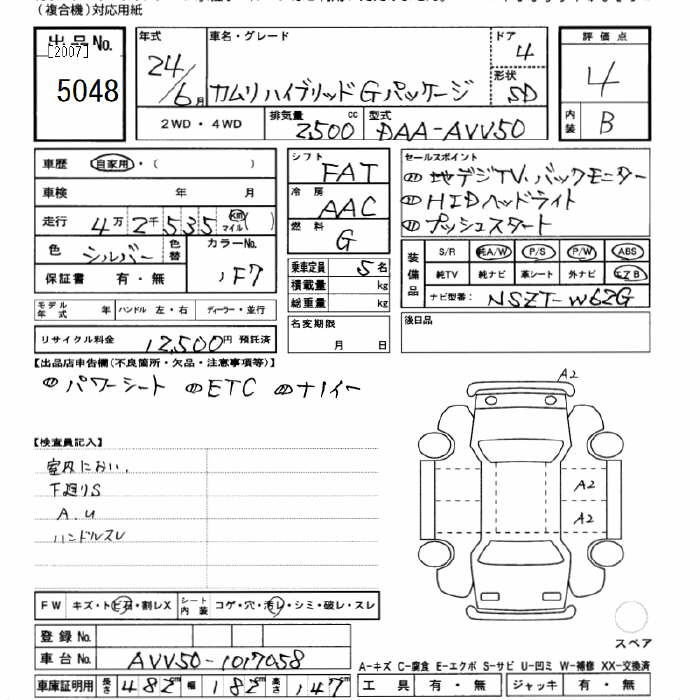 (複合機)対応用紙
出品No.
[2007]
5048
年式
24/6月
車名・グレード
カムリハイブリッドGパッケージ
ドア
4
形状
SD
評価点
4
内装
B
2WD・4WD
排気量
2500 cc
型式
DAA-AVV50
車歴 自家用・( )
車検 年 月
走行 4万2千535 km マイル( )
色 シルバー 色替
カラーNo.
1F7
保証書 有・無
モデル年式 年 ハンドル 左・右 ディーラー・並行
リサイクル料金 12,500円 預託済
シフト
FAT
冷房
AAC
燃料
G
乗車定員 5名
積載量 kg
総重量 kg
名変期限
月 日
セールスポイント
⑴地デジTV.バックモニター
⑴HIDヘッドライト
⑴プッシュスタート
装備品
S/R 純A/W P/S P/W ABS
純TV 純ナビ 革シート 外ナビ エアB
ナビ型番: NSZT-W62G
後日品
【出品店申告欄(不良箇所・欠品・注意事項等)】
⑴パワーシート ⑴ETC ⑴ナノイー
【検査員記入】
室内におい.
下廻りS
A.U
ハンドルスレ
A2
A2
A2
スペア
FW キズ・トビ石・割レX シート内装 コゲ・穴・汚レ・シミ・破レ・スレ
登録No.
車台No. AVV50-1017058
車庫証明用 長さ 482 幅 182 高さ 147
A-キズ C-腐食 E-エクボ S-サビ U-凹ミ W-補修 XX-交換済
工具 有・無 ジャッキ 有・無